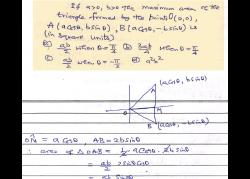 If a>0, b>0 the maximum area of the
triangle formed by the points O(0,0),
A(a cosθ, b sinθ), B(a cosθ, -b sinθ) is
(in square units)
a) ab/2 when θ = π/4 b) 3ab/4 when θ = π/4
c) ab/2 when θ = -π/2 d) a²b²
A
O
M
B (a cosθ, -b sinθ)
OM = a cosθ, AB = 2b sinθ
∴ area of Δ OAB = 1/2 · a cosθ · 2b sinθ
= ab/2 2 sinθ cosθ
= ab sin2θ